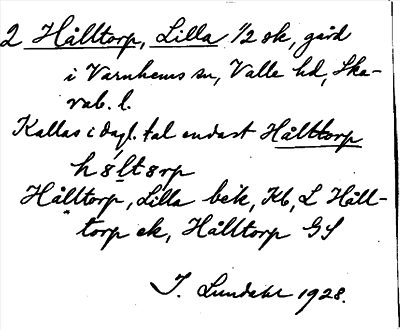 2 Hålltorp, Lilla 1/2 sk, gård
i Varnhems sn, Valle hd, Ska-
rab. l.
Kallas i dagl. tal endast Hålltorp
Hålltorp, Lilla bek, Kb, L Håll-
torp ek, Hålltorp GS
I. Lundahl 1928.